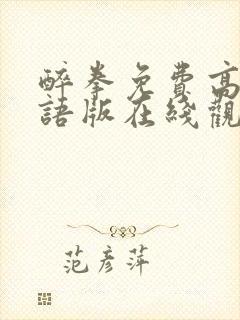 醉拳免费高
語版在线觀
范彦萍